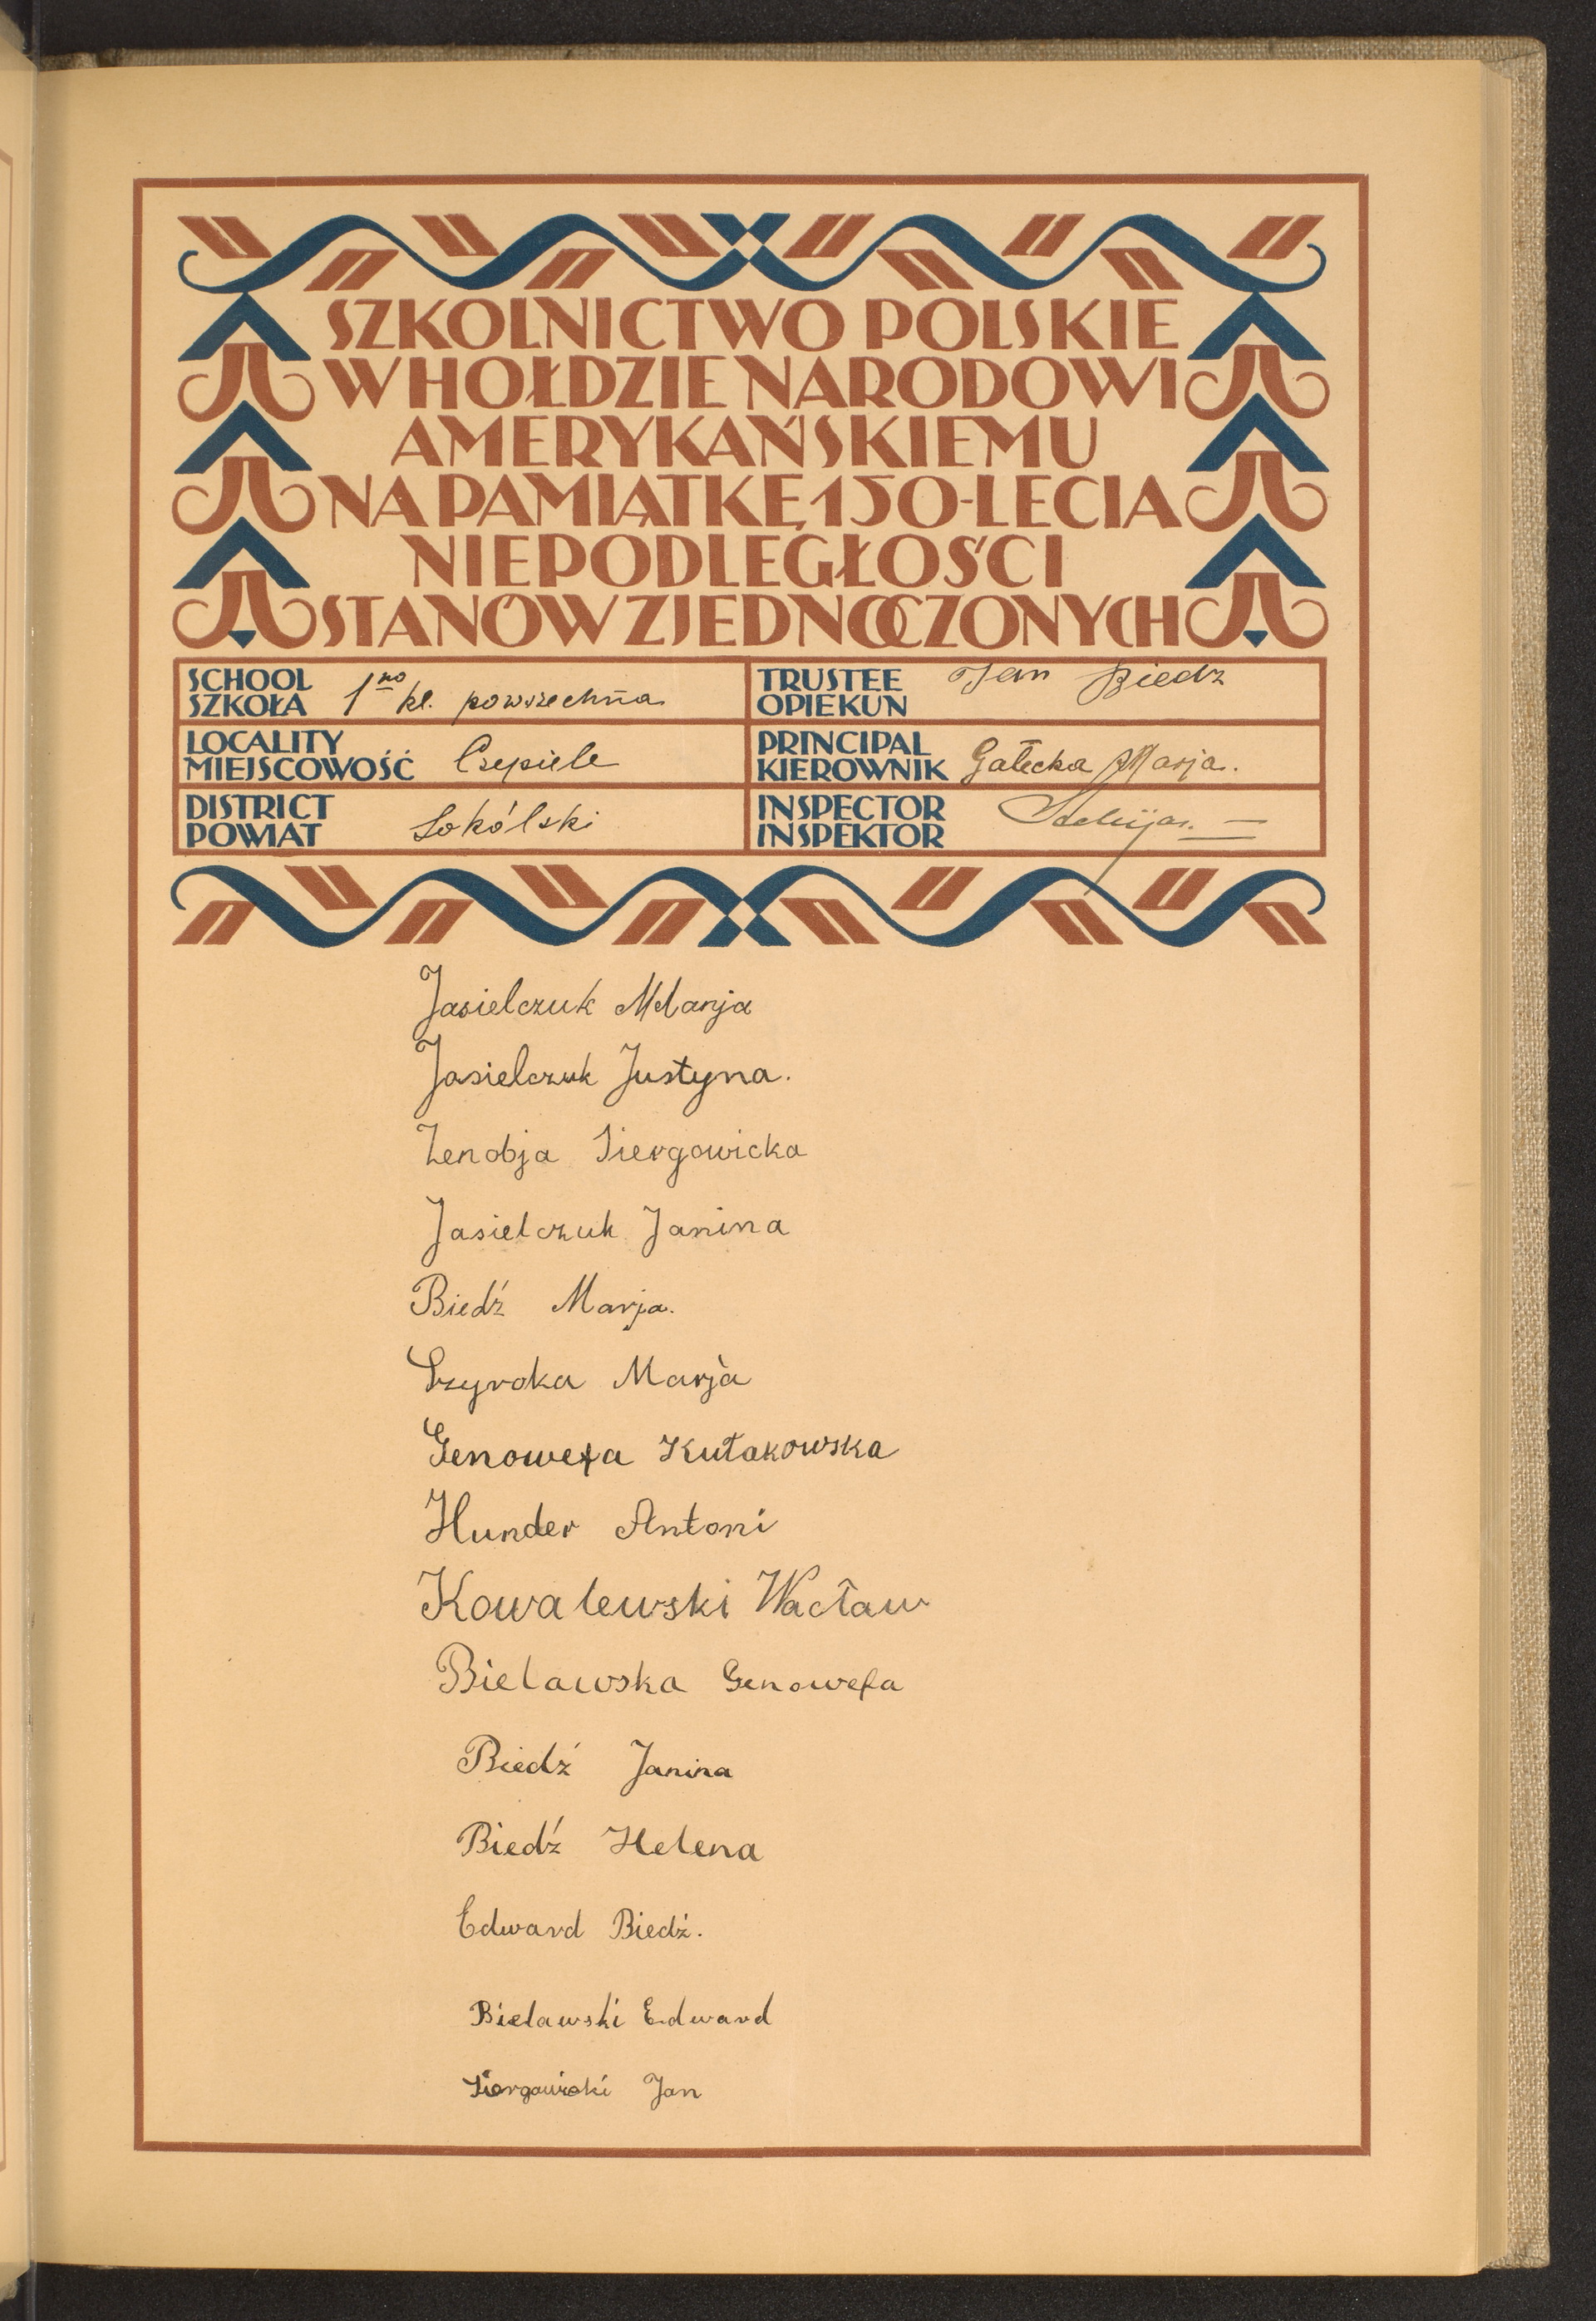 SZKOLNICTWO POLSKIE
W HOŁDZIE NARODOWI
AMERYKAŃSKIEMU
NA PAMIĄTKĘ 150-LECIA
NIEPODLEGŁOŚCI
STANÓW ZJEDNOCZONYCH
SCHOOL
SZKOŁA 1no kl. powszechna
TRUSTEE
OPIEKUN Jan Biedź
LOCALITY
MIEJSCOWOŚĆ Czepiele
PRINCIPAL
KIEROWNIK Gałecka Marja.
DISTRICT
POWIAT Sokólski
INSPECTOR
INSPEKTOR
Jasielczuk Melanja
Jasielczuk Justyna.
Zenobja Siergowicka
Jasielczuk Janina
Biedź Marja.
Czyroka Marja
Genowefa Kułakowska
Hunder Antoni
Kowalewski Wacław
Bielawska Genowefa
Biedź Janina
Biedź Helena
Edward Biedź.
Bielawski Edward
Jan